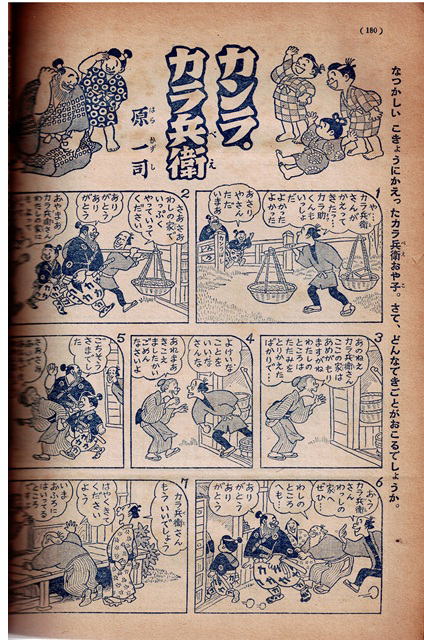 (180)
なつかしい こきょうにかえったカラ兵衛おや子。さて、どんなできごとがおこるでしょうか。
カンラ・
カラ兵衛
べえ
原 一司
はら かずし
1
や…
カラ兵衛
さんが
かえって
きたッ
カラ助
くんも
いっしょ
だっ
よかった
よかった
おさむ
らいさん
ただ
いまぁ
2
さあさあ
わしの家で
いっぷく
やっていって
ください
ありが
とう
あり
がとう
あやまあ
カラ兵衛さん
わたしの家は
3
あのねえ
カラ兵衛さん
ここの家は
あめがもり
ますがね
わたしの
ところは
たたみを
とりかえた
ばかり…
4
よけいな
ことを
いいな
さんな
あれまあ
きこえ
ましたかい
ごめん
なさいよ
5
ごちそう
さまでし
た
6
おう
カラ兵衛
さん
わっしの
家へ
ぜひ…
わしの
ところ
へも…
ありがとう
あり
がとう
7
カラ兵衛さん
もういいでしょう
はやくきて
ください
よう
いま
おふろに
はいってる
ところ
ですよ